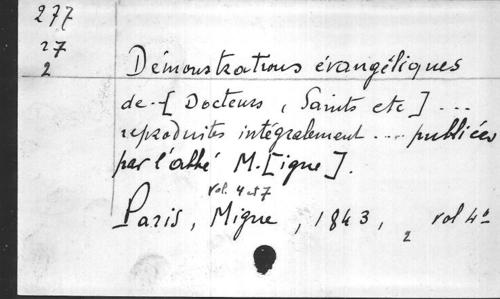 277
27
2
Démonstrations évangéliques
de - [ Docteurs, Saints etc ] ...
reproduites intégralement ... publiées
par l'abbé M. [igne ].
vol. 4 et 7
Paris, Migne, 1843, 2 vol 4°